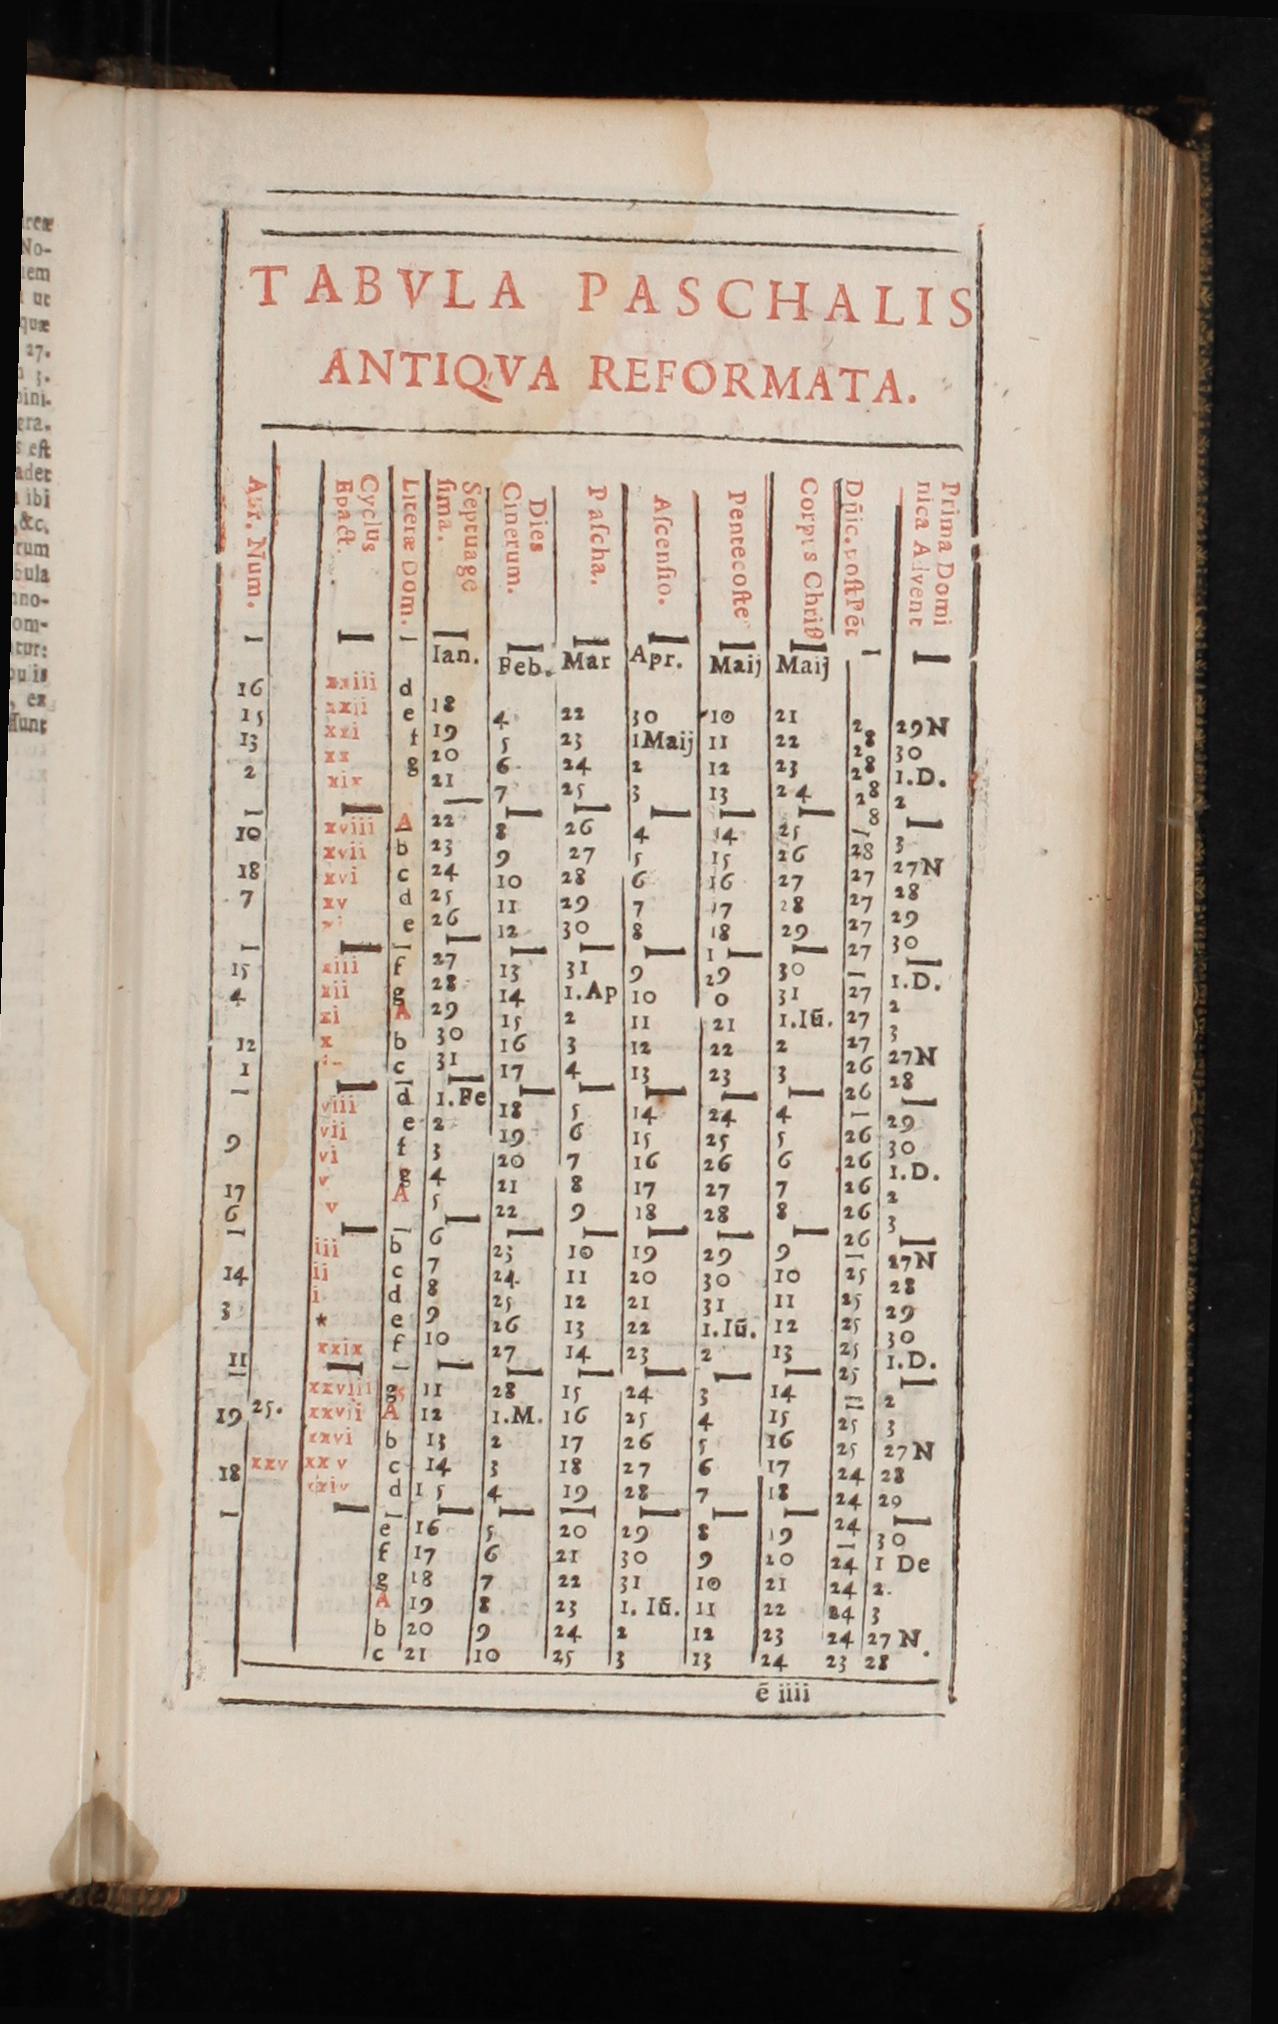 TABVLA PASCHALIS
ANTIQVA REFORMATA.
Aur. Num. Cyclus Epact. Literæ Dom. Septuage sima. Dies Cinerum. Pascha. Ascensio. Pentecoste Corpus Christ Dñic. post Pẽt Prima Domi nica Advent
Ian. Feb. Mar Apr. Maij Maij
16 xxiii d
15 xxii e 18 4 22 30 10 21 28 29N
13 xxi f 19 5 23 1Maij 11 22 28 30
2 xx g 20 6 24 2 12 23 28 1.D.
xix 21 7 25 3 13 24 28 2
10 xviii A 22 8 26 4 14 25 28 3
xvii b 23 9 27 5 15 26 27 27N
18 xvi c 24 10 28 6 16 27 27 28
7 xv d 25 11 29 7 17 28 27 29
e 26 12 30 8 18 29 27 30
15 xiii f 27 13 31 9 29 30 27 1.D.
4 xii g 28 14 1.Ap 10 0 31 27 2
xi A 29 15 2 11 21 1.Iũ. 27 3
12 x b 30 16 3 12 22 2 26 27N
1 c 31 17 4 13 23 3 26 28
viii d 1.Fe 18 5 14 24 4 26 29
9 vii e 2 19 6 15 25 5 26 30
vi f 3 20 7 16 26 6 26 1.D.
17 v g 4 21 8 17 27 7 26 2
6 v A 5 22 9 18 28 8 26 3
iii b 6 23 10 19 29 9 25 27N
14 ii c 7 24 11 20 30 10 25 28
i d 8 25 12 21 31 11 25 29
3 * e 9 26 13 22 1.Iũ. 12 25 30
11 xxix f 10 27 14 23 2 13 25 1.D.
xxviii g 11 28 15 24 3 14 25 2
19 25. xxvii A 12 1.M. 16 25 4 15 25 3
xxvi b 13 2 17 26 5 16 24 27N
18 xxv xxv c 14 3 18 27 6 17 24 28
xxiv d 15 4 19 28 7 18 24 29
e 16 5 20 29 8 19 24 30
f 17 6 21 30 9 20 24 1 De
g 18 7 22 31 10 21 24 2.
A 19 8 23 1. Iũ. 11 22 24 3
b 20 9 24 2 12 23 24 27 N.
c 21 10 25 3 13 24 23 28
ẽ iiii